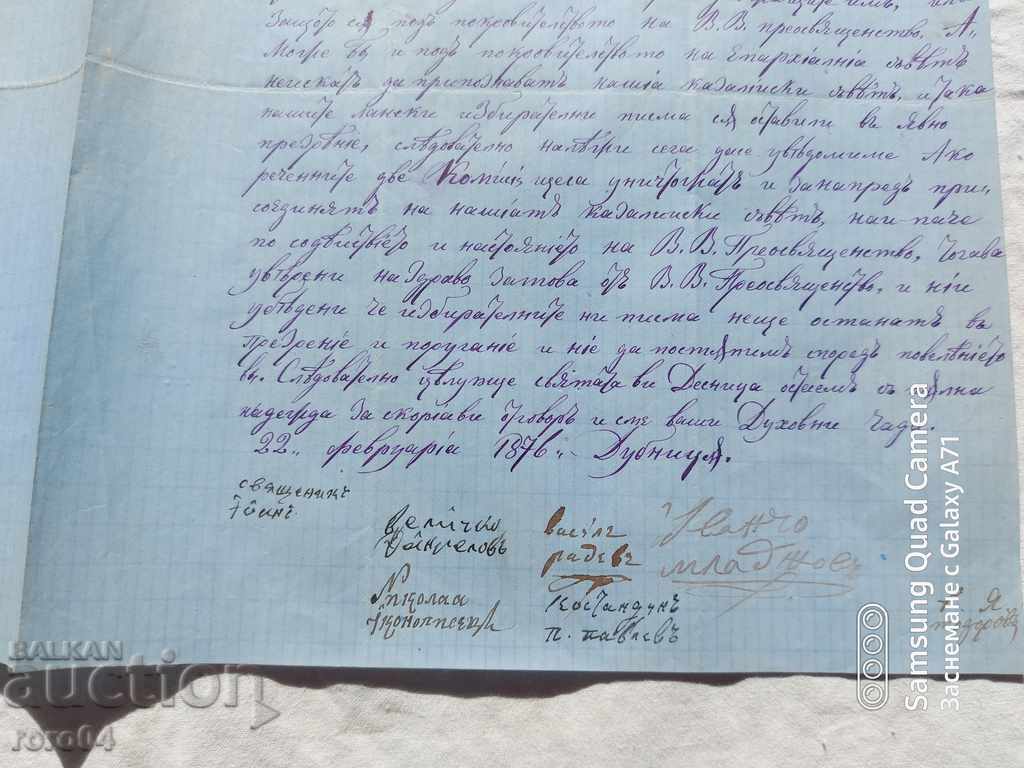 Защото сѫ подъ покровителството на В. В. преосвященство. А,
Могѫе въ и подъ покровителството на Епархіалнія съвѣтъ
неискатъ да припознаватъ нашіа казалийски съвѣтъ, и така
нашите лански избирателни писма сѫ оставили въ явно
презрѣніе, слѣдователно сега да ве увѣдомиме Ако
речените две Комисіи щеса уничтожатъ и занапредъ при,
соединятъ на нашиатъ казалийски съвѣтъ, наи паче
по содѣйствіето и настояніето на В. В. Преосвященство, тогава
увѣрени наздраво затова отъ В. В. Преосвященство, и ніи
убѣдени че избирателните ни писма неще останатъ въ
Презреніе и поруганіе и ніе да постѫпимъ споредъ повелѣніето
ви. Слѣдователно цѣлующе святата ви Десница оставамъ съ пълна
надежда за скориави отговоръ и сме ваши Духовни Чада.
22., февруаріа 1876., Дубница.
священикъ
Іоанъ
Величко
Дангеловъ
Василъ
радевъ
Иванчо
младжовъ
Николаа
Іконописеци
Костандинъ
п. павлевъ
Я
BALKAN
auction
roro04
Samsung Quad Camera
Заснемане с Galaxy A71